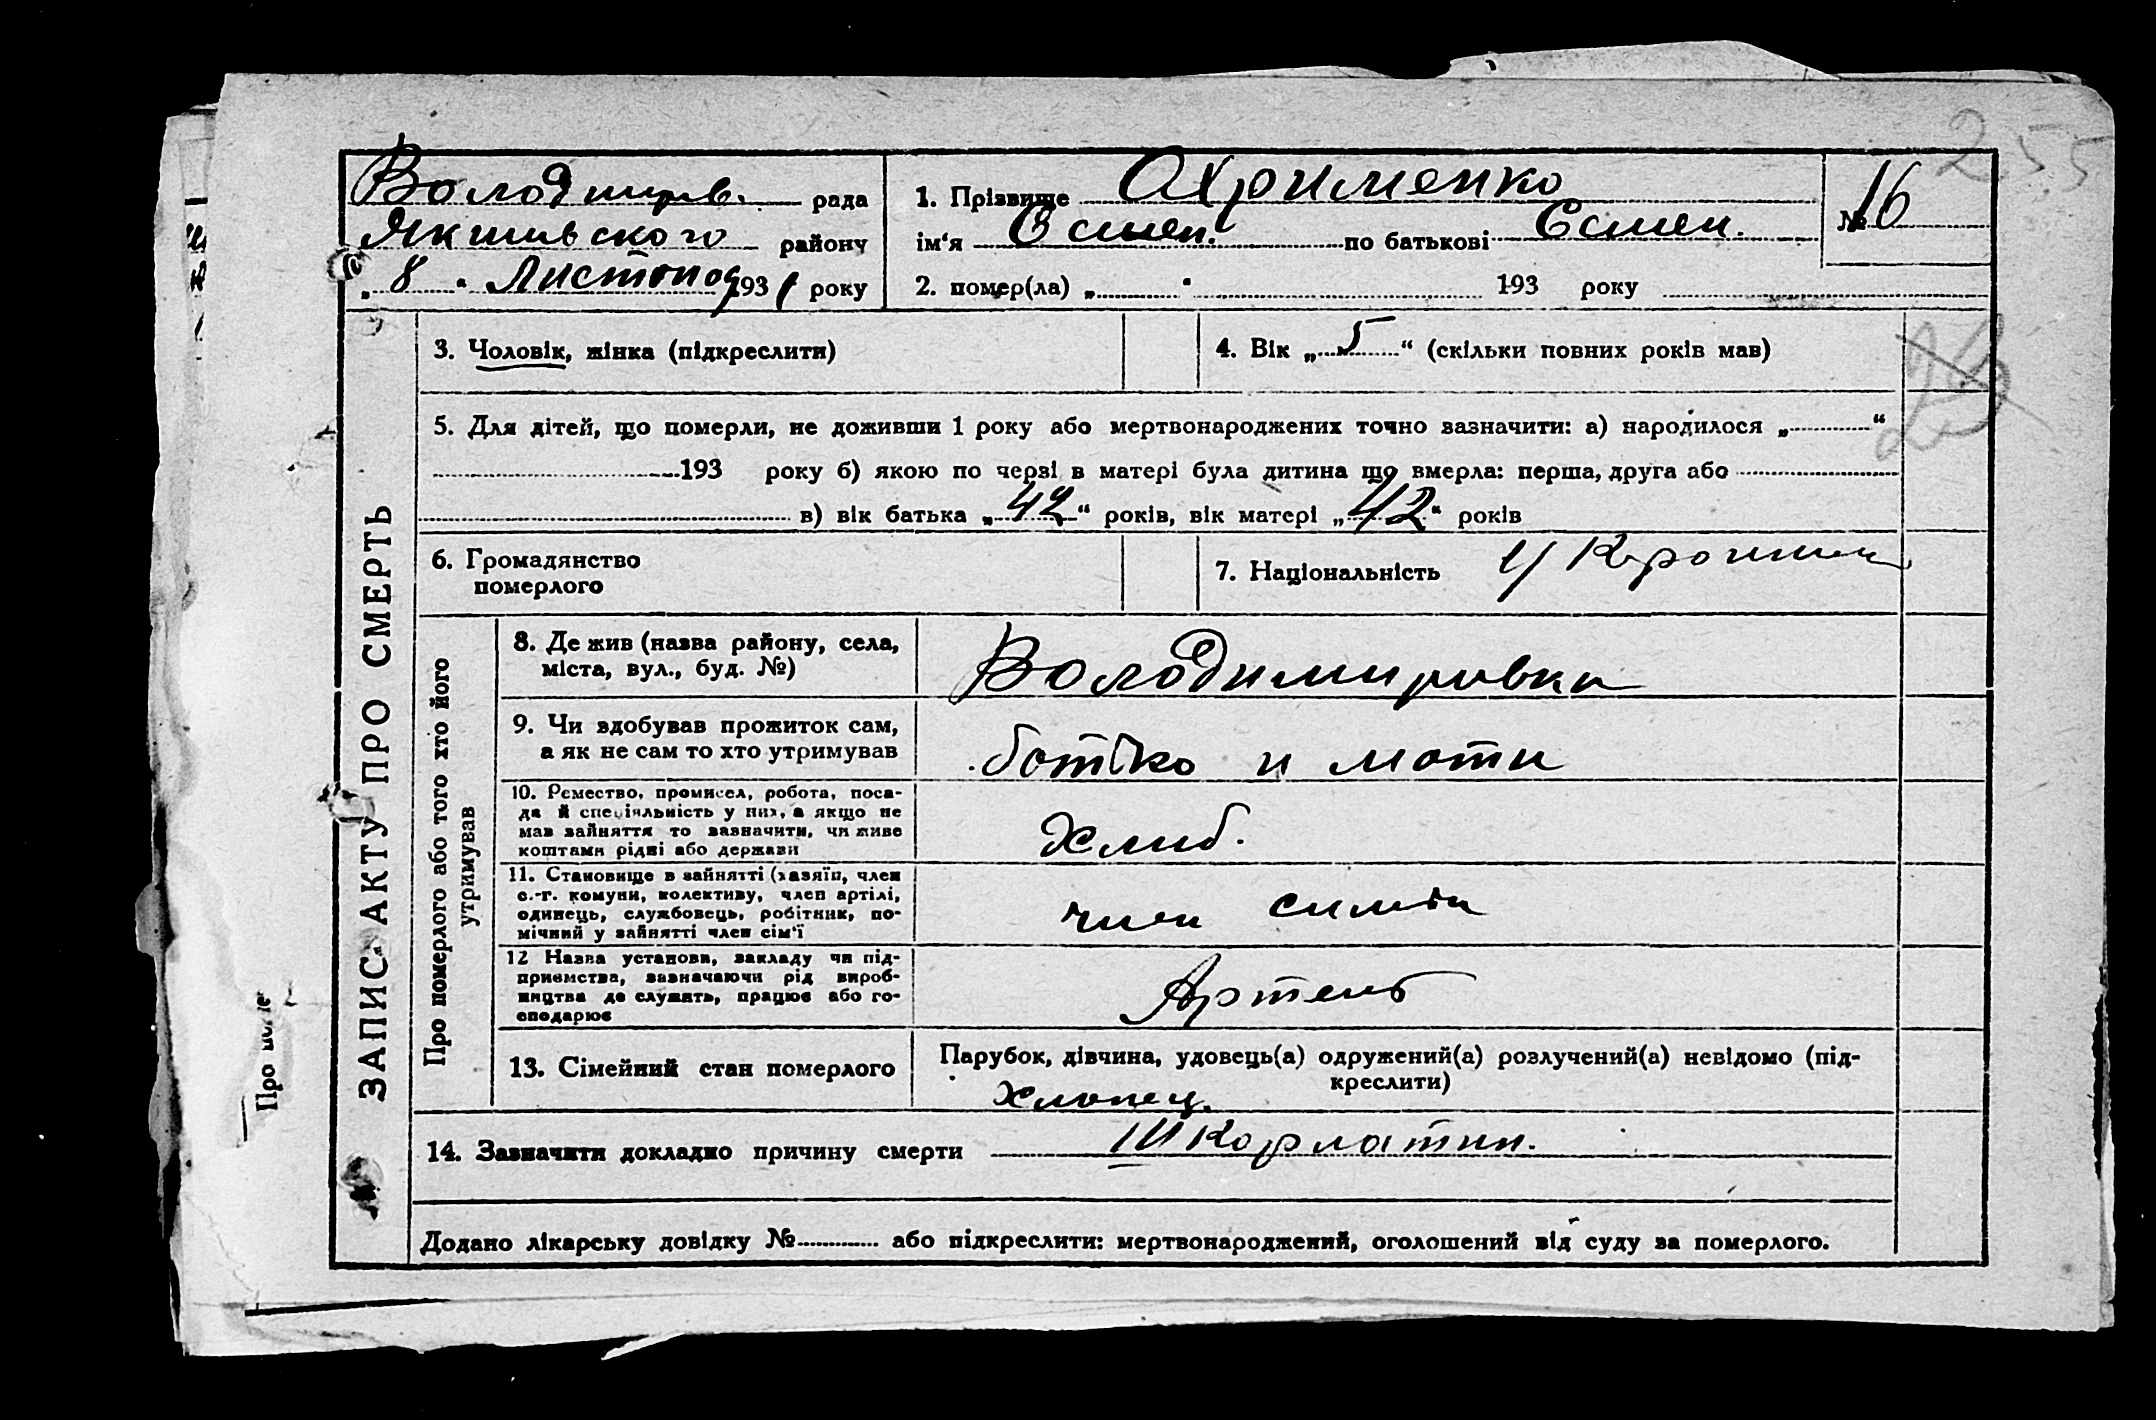 255
Володимирів. рада
Якимівского району
„8“ Листопад 1931 року
1. Прізвище Охрименко
№ 16
ім'я Осмеп. по батькові Есмен.
2. помер(ла) „ “ 193 року
3. Чоловік, жінка (підкреслити)
4. Вік „5“ (скільки повних років мав)
5. Для дітей, що померли, не доживши 1 року або мертвонароджених точно зазначити: а) народилося „ “
193 року б) якою по черзі в матері була дитина що вмерла: перша, друга або
в) вік батька „42“ років, вік матері „42“ років
6. Громадянство
померлого
7. Національність
ЗАПИС АКТУ ПРО СМЕРТЬ
Про померлого або того хто його
утримував
8. Де жив (назва району, села,
міста, вул., буд. №)
Володимировка
9. Чи здобував прожиток сам,
а як не сам то хто утримував
ботько и моти
10. Ремество, промисел, робота, поса-
да й спеціяльність у них, а якщо не
мав зайняття то зазначити, чи живе
коштами рідні або держави
Хлиб.
11. Становище в зайнятті (хазяїн, член
с.-г. комуни, колективу, член артілі,
одинець, службовець, робітник, по-
мічний у зайнятті член сім'ї
член симьи
12 Назва установи, закладу чи під-
приємства, зазначаючи рід вироб-
ництва де служить, працює або го-
сподарює
Артель
13. Сімейний стан померлого
Парубок, дівчина, удовець(а) одружений(а) розлучений(а) невідомо (під-
креслити)
Хлопец.
14. Зазначити докладно причину смерти Шкорлатин.
Додано лікарську довідку № або підкреслити: мертвонароджений, оголошений від суду за померлого.